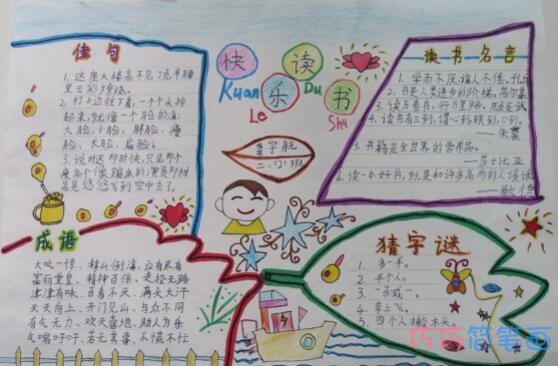 佳句
快乐读书
Kuan Le Du Shu
读书名言
1. 这座大楼高不见顶
里云彩
2. 打上边往下看,一个个头拎
起来,就像一个脸的海:
大脸,小脸,胖脸,瘦
脸,长脸,扁脸。
3. 说时迟那时快,只见那个
1. 学而不厌,诲人不倦。
2. 书是人类进步的阶梯。高尔基
3. 读万卷书,行万里路。
4. 读书有三到,谓心到,眼到,口到。
——朱熹
5. 书籍是全世界的营养品。
——莎士比亚
6. 读一本好书,就是和许多高尚的人谈话
——歌德
宇航
二、(2)班
成语
大吃一惊、排山倒海、应有尽有
富丽堂皇、精神百倍、走投无路
津津有味、百看不厌、满头大汗
天天向上、开门见山、与众不同
有气无力、欢天喜地、助人为乐
气喘吁吁、若无其事、不慌不忙
猜字谜
1. 多一半。
2. 半个人。
3. 一百减一。
4. 草上飞。
5. 四个人搬木头
巧巧简笔画